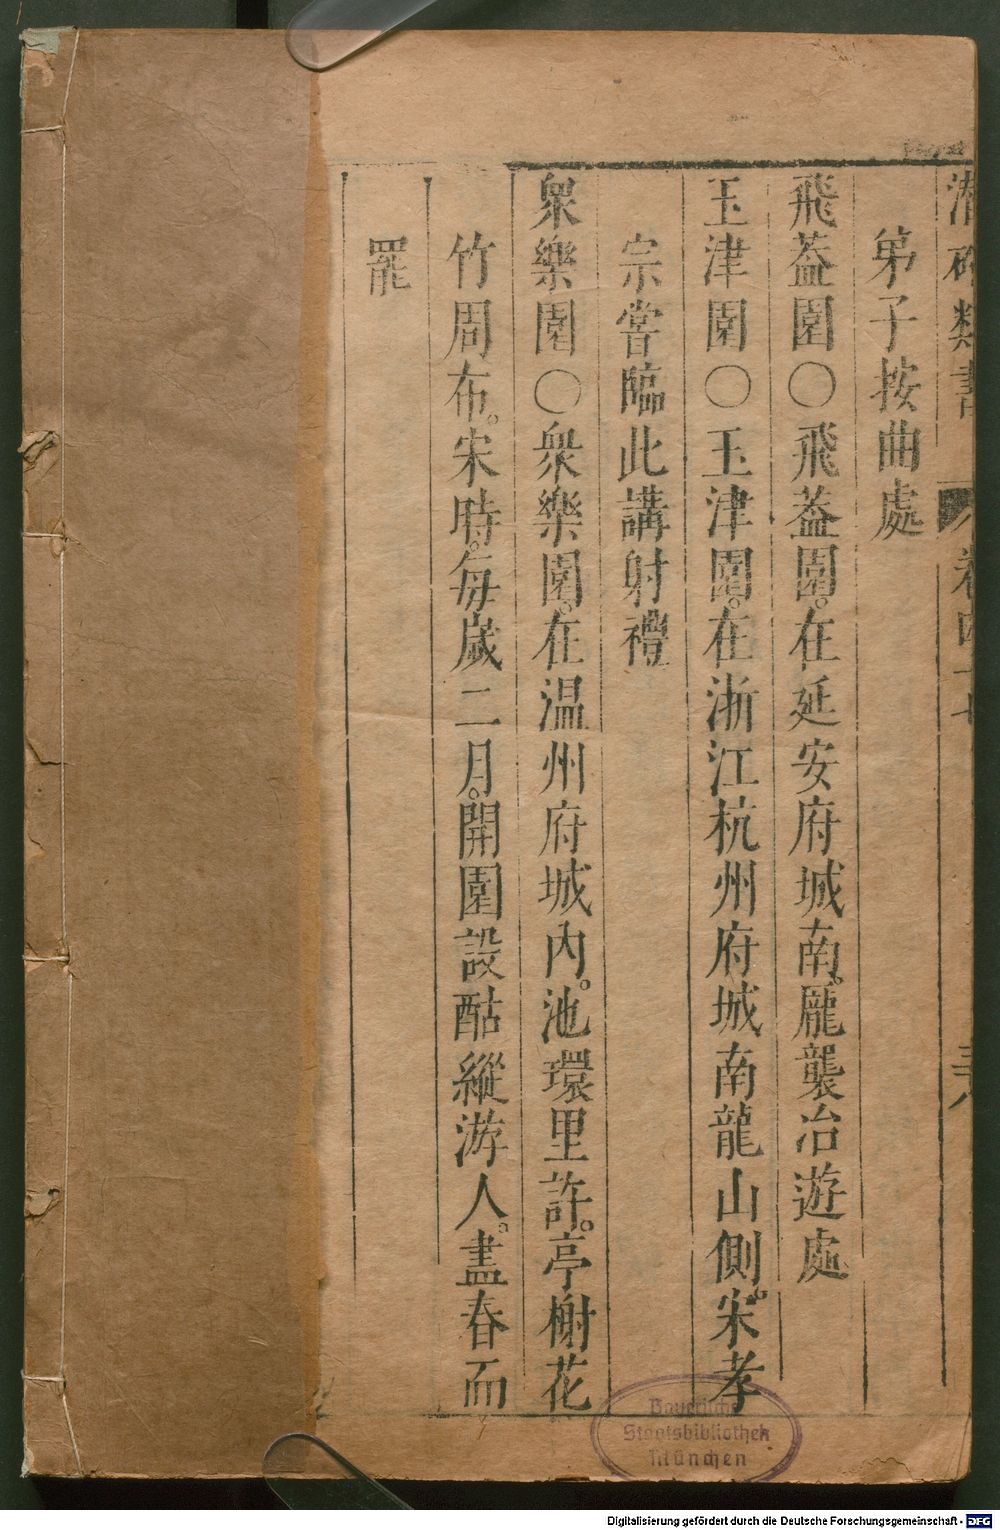 潛確類書 卷四十七 三十八
弟子按曲處
飛葢園〇飛葢園。在延安府城南。龐襲冶遊處
玉津園〇玉津園。在浙江杭州府城南龍山側。宋孝
宗嘗臨此講射禮
衆樂園〇衆樂園。在温州府城內。池環里許。亭榭花
竹周布。宋時。每歲二月。開園設酤縱游人。盡春而
罷
Bayerische
Staatsbibliothek
München
Digitalisierung gefördert durch die Deutsche Forschungsgemeinschaft - DFG